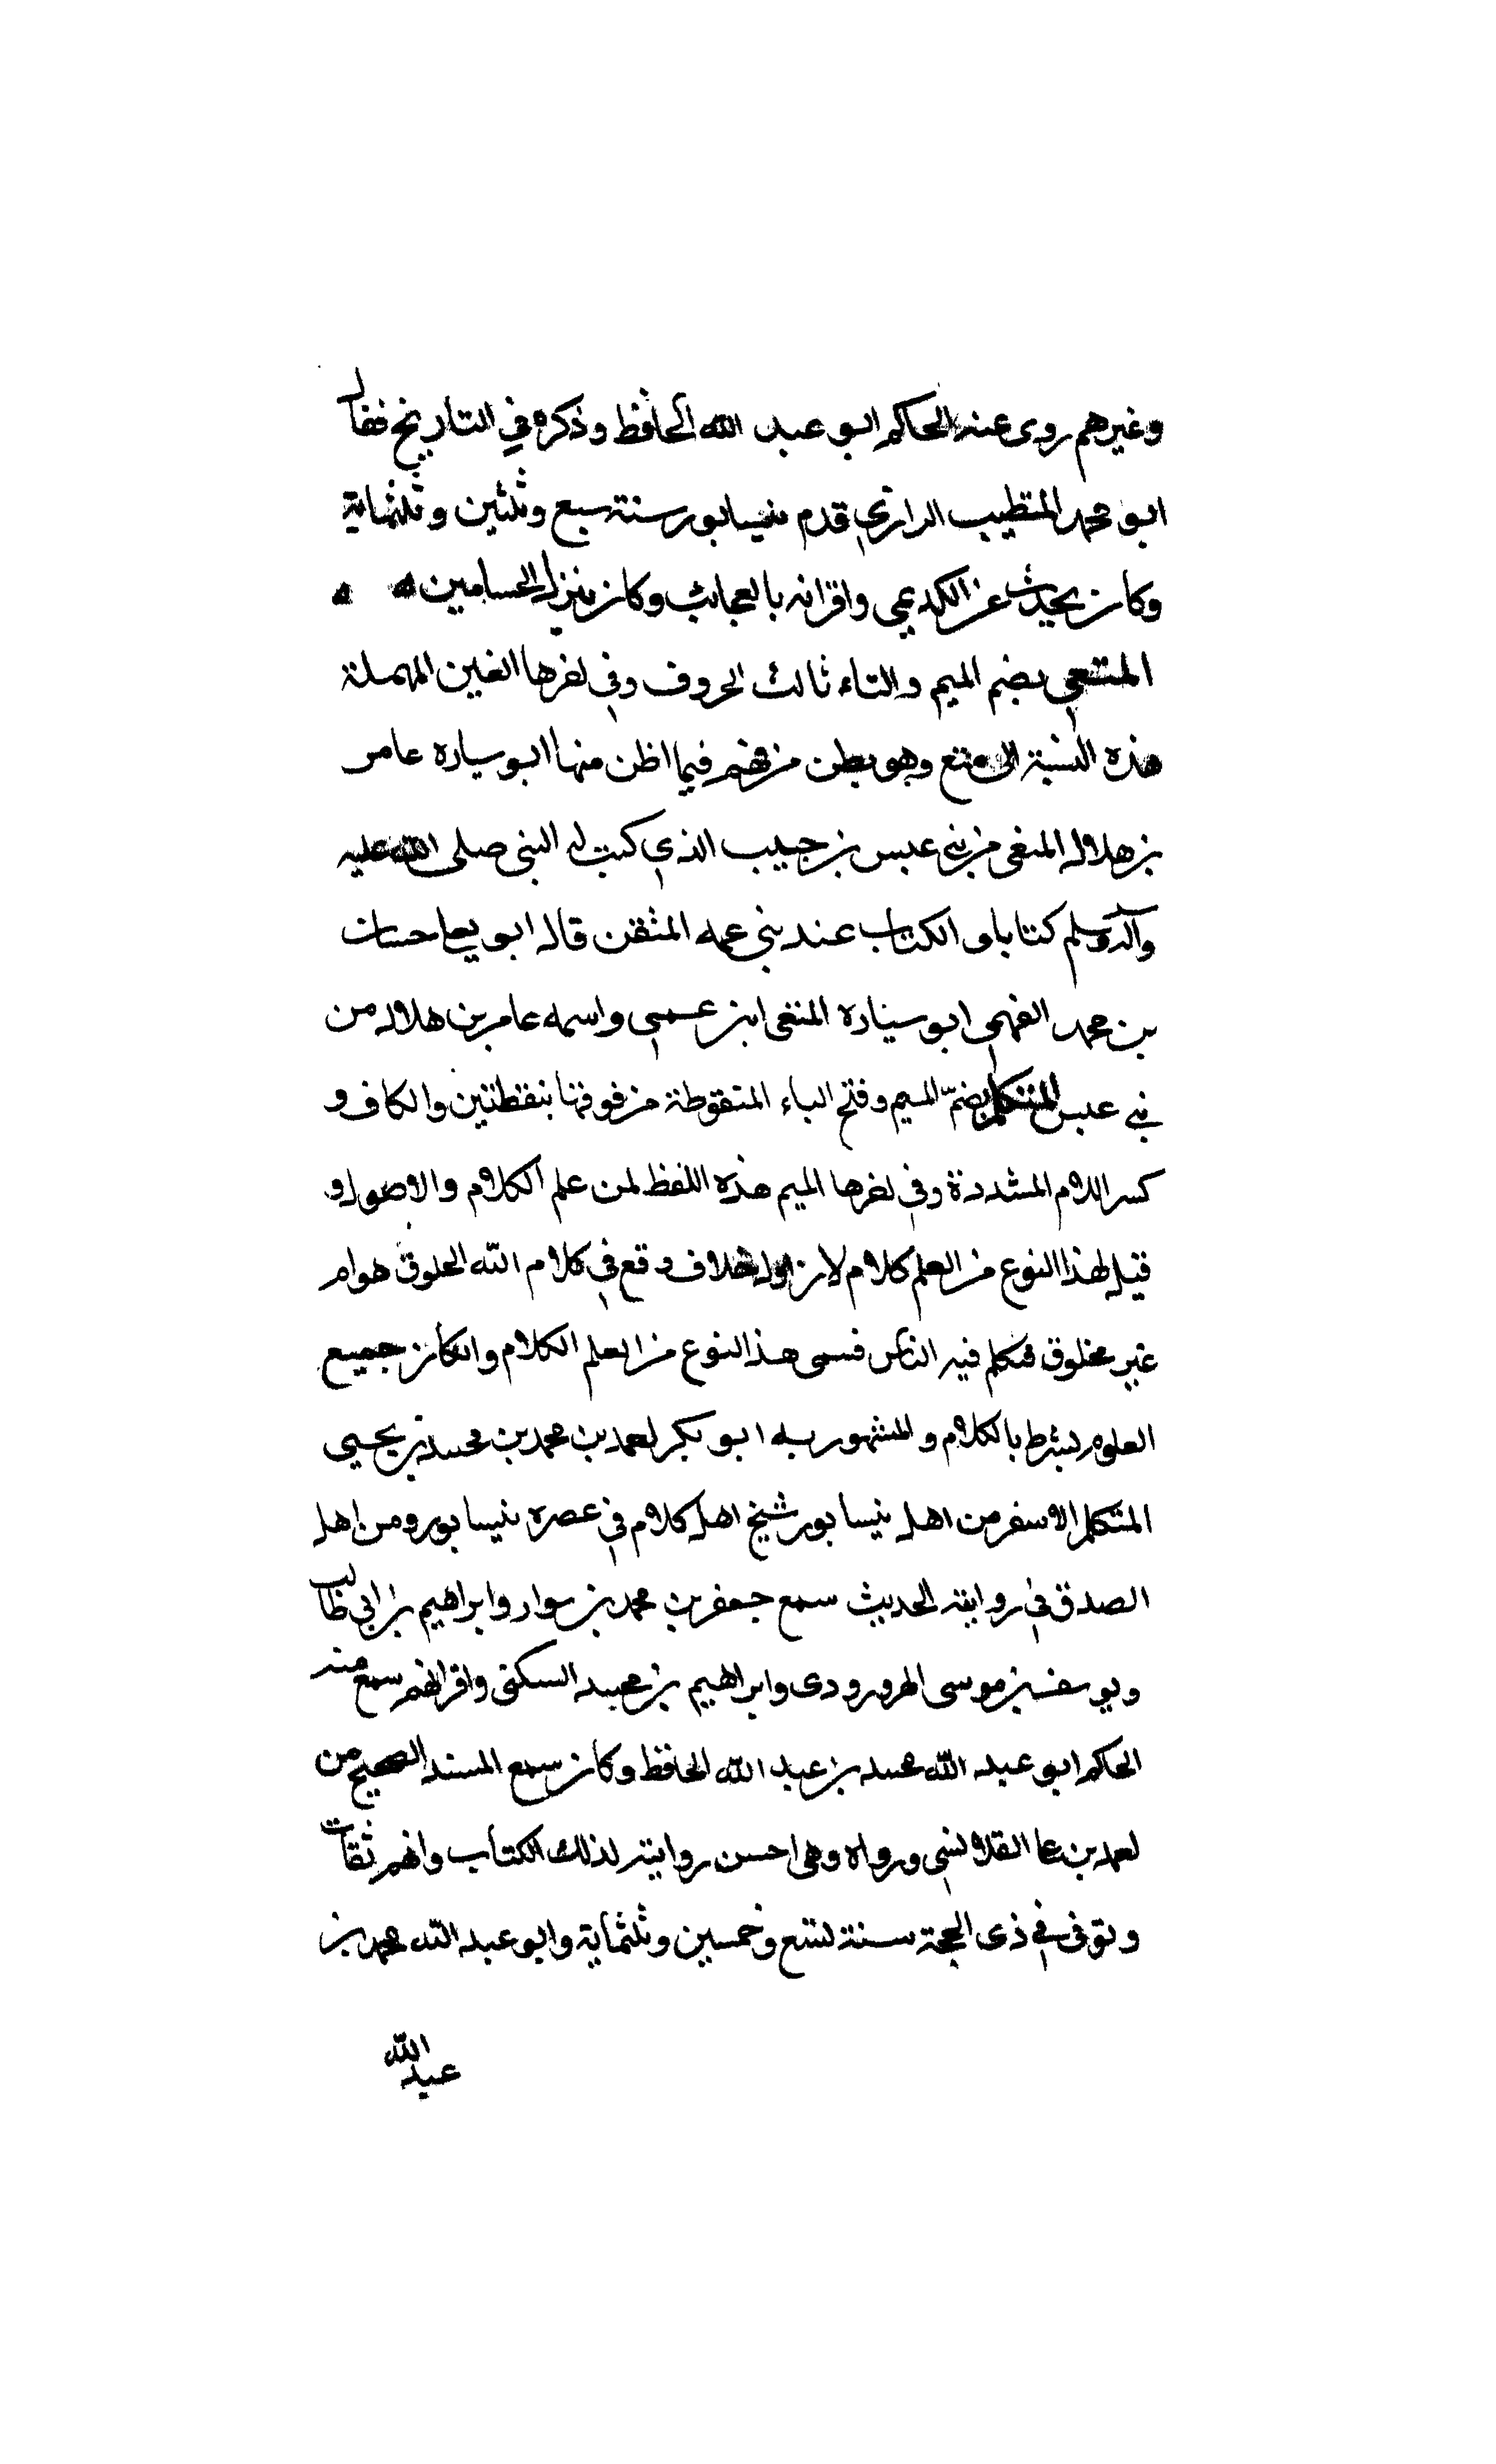 وغيرهم روى عنه الحاكم ابو عبد الله الحافظ وذكره في التاريخ فقال
ابو محمد المتطبب الرازي قدم نيسابور سنة سبع وثلثين وثلثماية
وكان يحدث عن الكديمي واقرانه بالعجائب وكان ينزل الحسامين
المتعي بضم الميم والتاء ثالث الحروف وفي اخرها العين المهملة
هذه النسبة الى متع وهو بطن من فهم فيما اظن منها ابو سياره عامر
بن هلال المتعي من بني عبس بن حبيب الذي كتب له النبي صلى الله عليه
وآله وسلم كتابا والكتاب عند بني عمه المثقن قاله ابو يعلى حسان
بن محمد الفهمي ابو سيارة المتعي ابن عبسى واسمه عامر بن هلال من
بني عبس المتكلم بضم الميم وفتح الباء المنقوطة من فوقها بنقطتين والكاف و
كسر اللام المشددة وفي اخرها الميم هذه اللفظ لمن علم الكلام والاصول و
قيل لهذا النوع من العلم كلام لان اول خلاف وقع في كلام الله الخلوق هو ام
غير مخلوق فتكلم فيه الناس فسمى هذا النوع من العلم الكلام وان كان جميع
العلوم بشرط بالكلام والمشهور به ابو بكر احمد بن محمد بن محمد بن يحيى
المتكلم الاسفر من اهل نيسابور شيخ اهل كلام في عصره بنيسابور ومن اهل
الصدق في رواية الحديث سمع جعفر بن محمد بن سوار وابراهيم بن ابي طالب
ويوسف بن موسى المرورودى وابراهيم بن عبيد السكني واقرانهم سمع منه
الحاكم ابو عبد الله محمد بن عبد الله الحافظ وكان سمع المسند الصحيح من
احمد بن على القلانسي ورواه وهى احسن رواية لذلك الكتاب وانهم ثقات
وتوفي في ذى الحجة سنة تسع وخمسين وثلثماية وابو عبد الله محمد بن
عبد الله